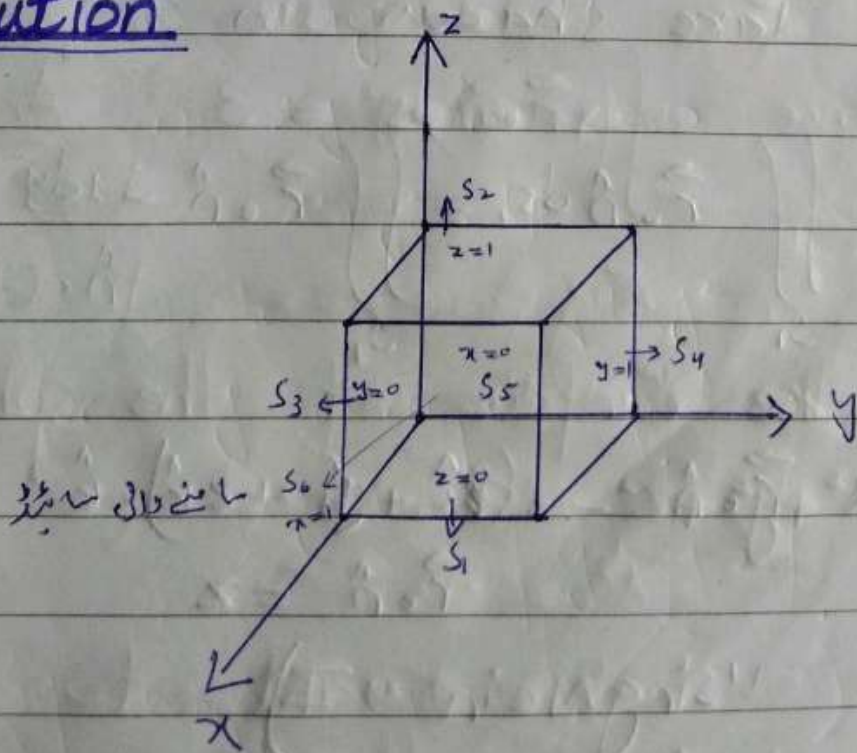 ution
z
S2
z=1
x=0
S5
y=1
S4
S3
y=0
y
سامنے والی سائیڈ
S6
x=1
z=0
S1
x